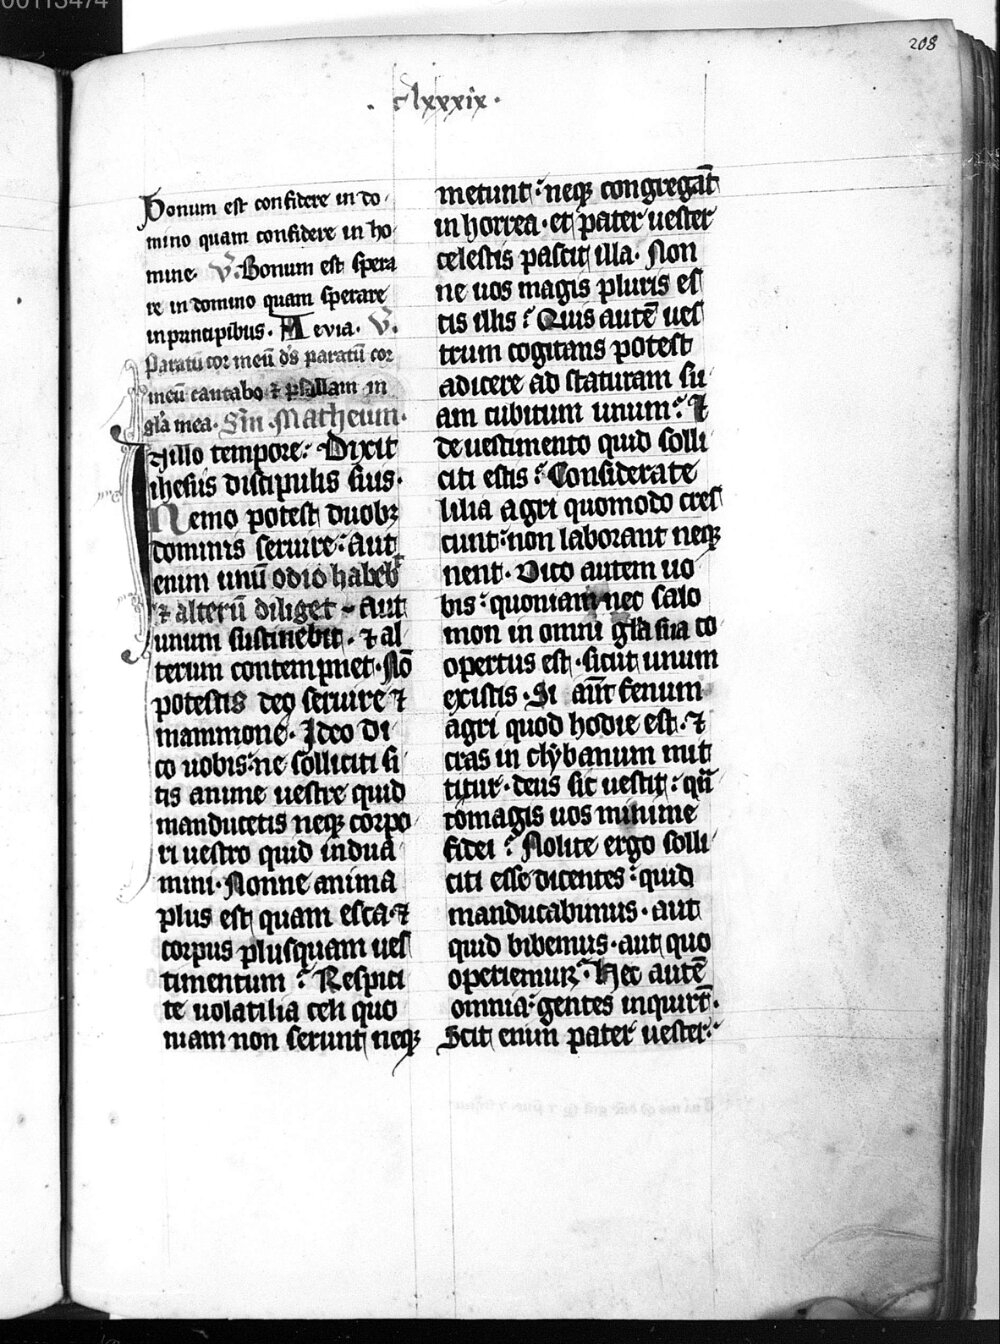 208
clxxxix.
Bonum est confidere in do
mino quam confidere in ho
mine. V. Bonum est spera
re in domino quam sperare
in principibus. Aevia. V.
Paratū cor meū ds̄ paratū cor
meū cantabo ⁊ psallam in
glā mea. Sm̄ Matheum.
In illo tempore: Dixit
ihesus discipulis suis.
Nemo potest duobꝫ
dominis seruire: aut
enim unū odio habeb̄
⁊ alterū diliget - aut
unum sustinebit. ⁊ al
terum contempnet. Nō
potestis deo seruire ⁊
mammone. Ideo di
co uobis: ne solliciti si
tis anime uestre quid
manducetis neqꝫ corpo
ri uestro quid indua
mini. Nonne anima
plus est quam esca. ⁊
corpus plusquam ues
timentum? Respici
te uolatilia celi quo
niam non serunt neqꝫ
metunt: neqꝫ congregāt
in horrea. et pater uester
celestis pascit illa. Non
ne uos magis pluris es
tis illis? Quis autē ues
trum cogitans potest
adicere ad staturam su
am cubitum unum? Et
de uestimento quid solli
citi estis? Considerate
lilia agri quomodo cres
cunt: non laborant neqꝫ
nent. Dico autem uo
bis: quoniam nec salo
mon in omni glā sua co
opertus est. sicut unum
existis. Si aūt fenum
agri quod hodie est. ⁊
cras in clybanum mit
titur. deus sic uestit: qn̄
to magis uos minime
fidei? Nolite ergo solli
citi esse dicentes: quid
manducabimus. aut
quid bibemus. aut quo
operiemur? Hec autē
omnia: gentes inquirt̄.
Scit enim pater uester: